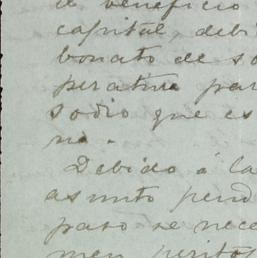 el beneficio
capital, debi
bonato de so
peratura par
sodio que es
no.
Debido á la
asunto pend
paso se nece
men peritos